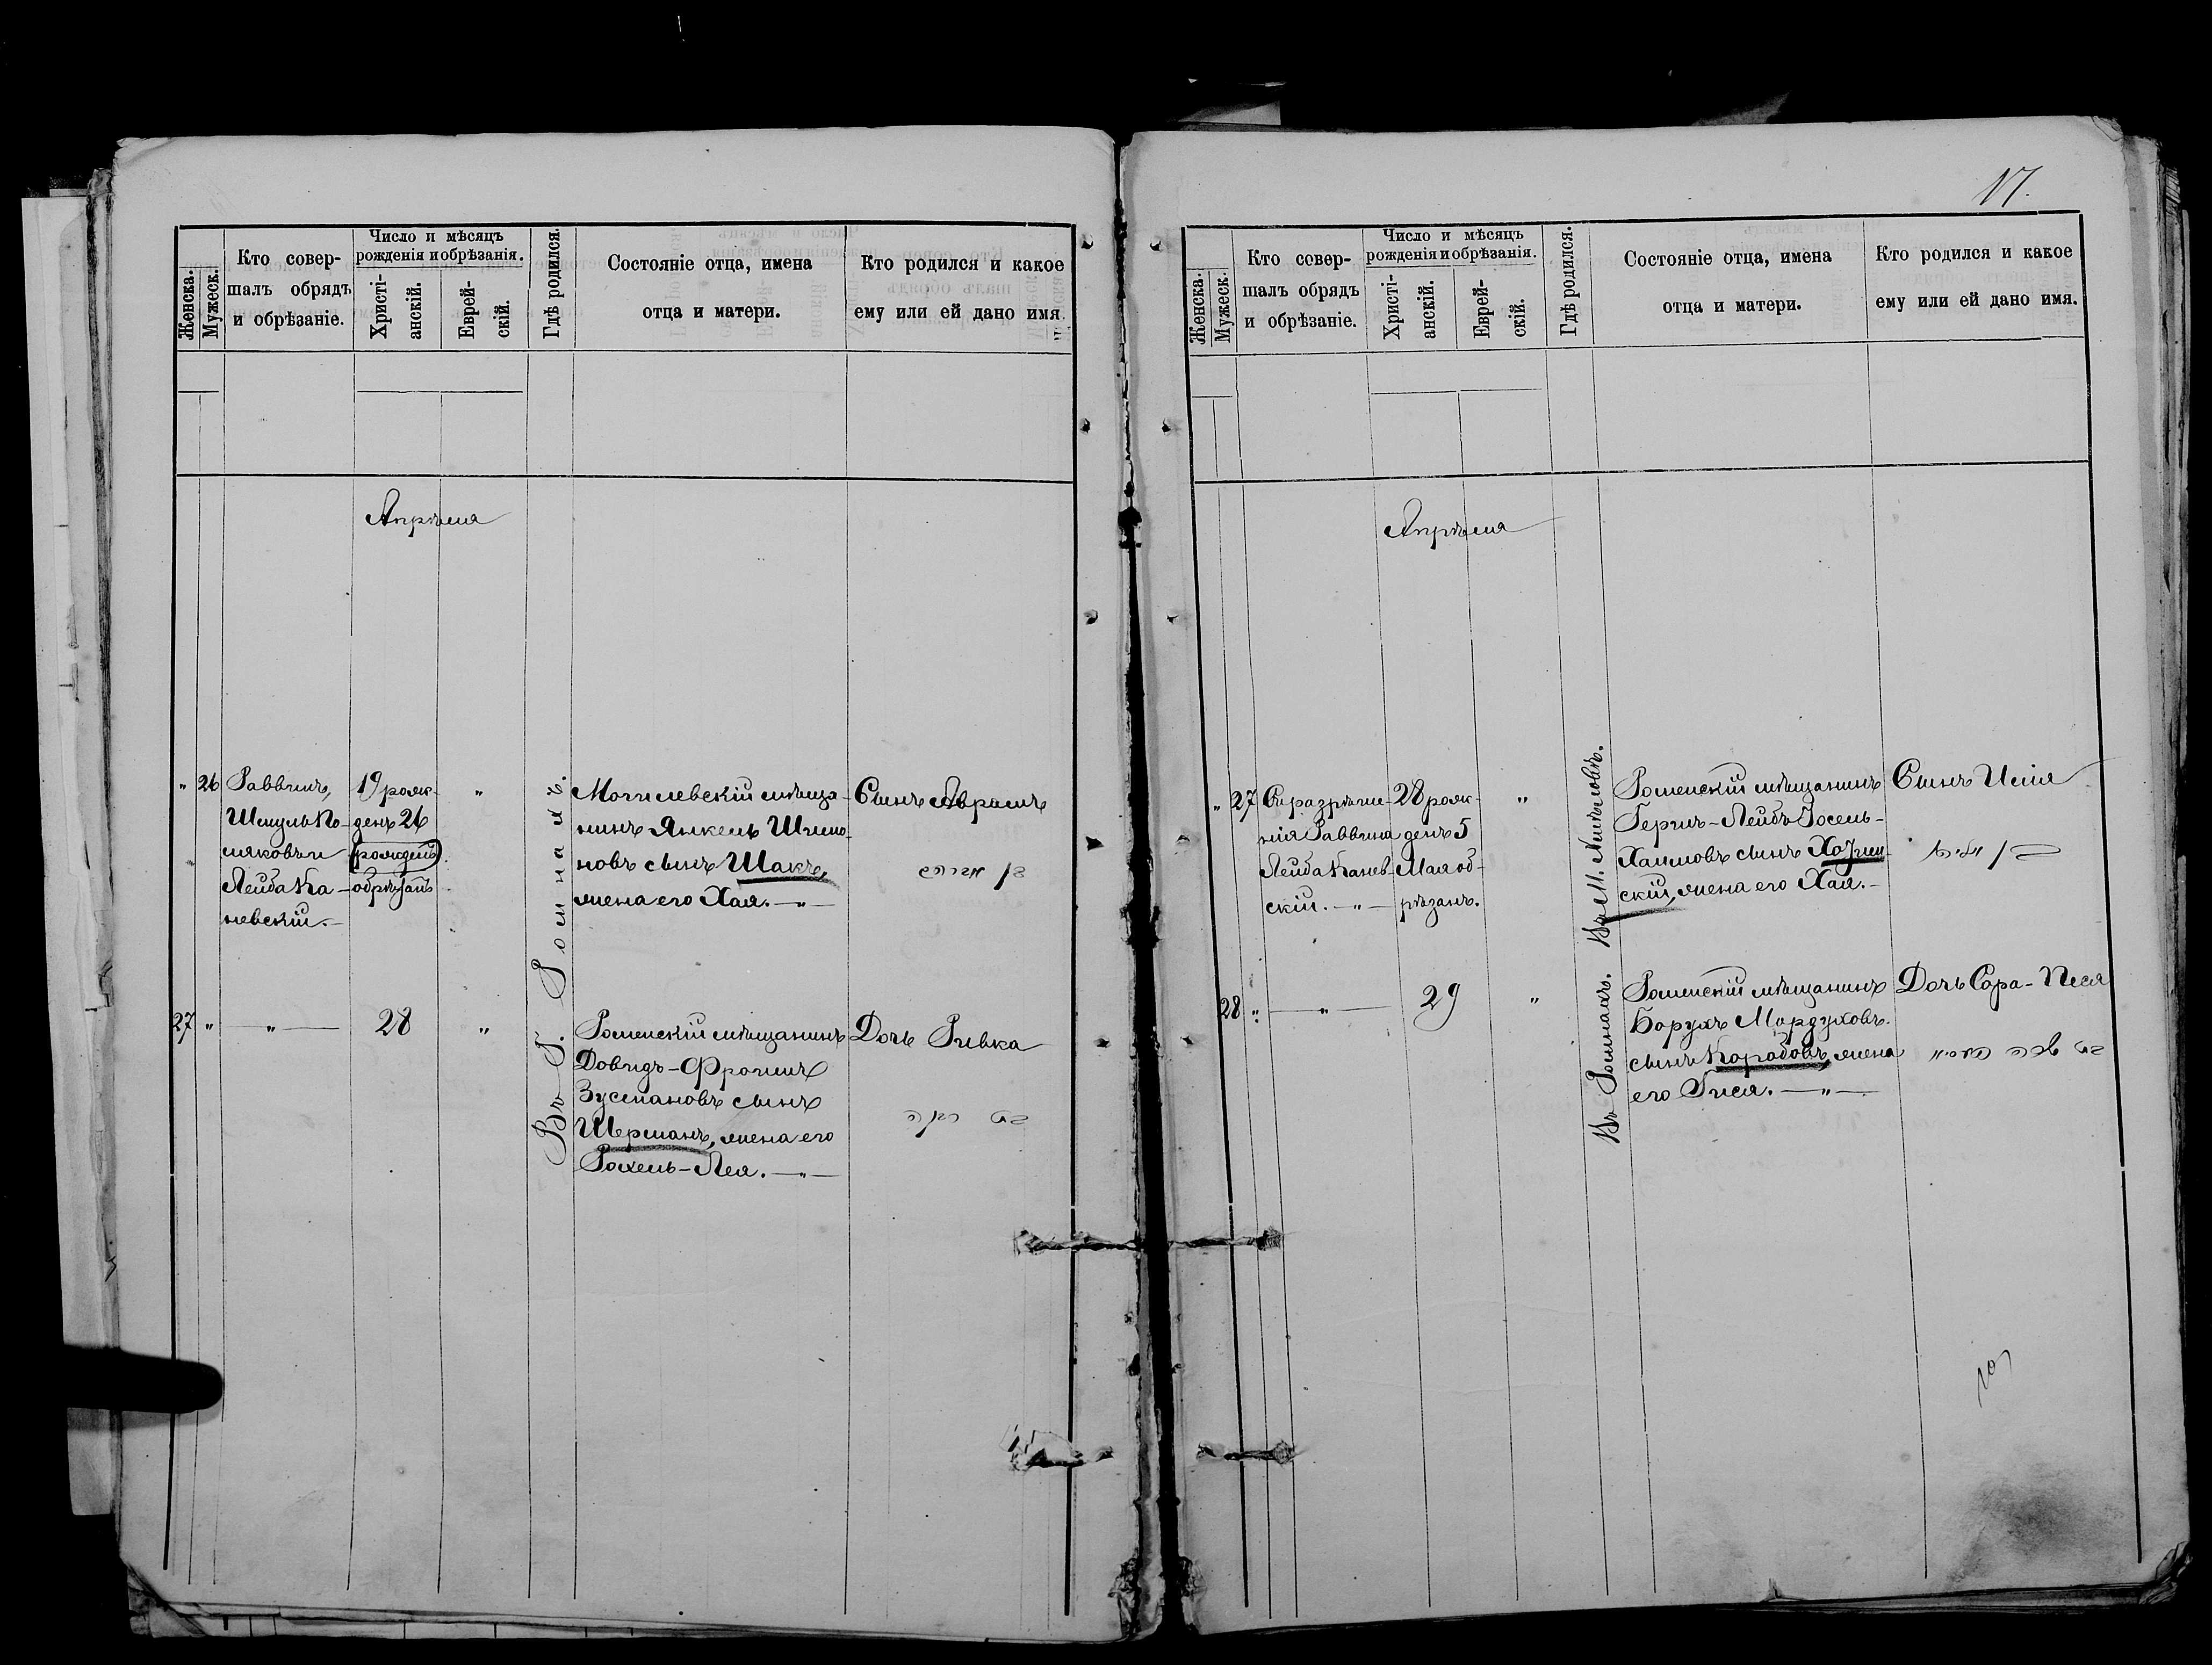 17.
Женска.
Мужеск.
Кто совер-
шалъ обрядъ
и обрѣзаніе.
Число и мѣсяцъ
рожденія и обрѣзанія.
Христі-
анскій.
Еврей-
скій.
Гдѣ родился.
Состояніе отца, имена
отца и матери.
Кто родился и какое
ему или ей дано имя.
Апрѣля
" 26
Раввинъ,
Шмуль По-
ляковъ и
Лейба Ка-
невскій.—
19 рож-
денъ 26
(рожденъ)
обрѣзанъ
"
Въ Г. Ромнахъ.
Могилевскій мѣща-
нинъ Янкель Шимо-
новъ сынъ Шакъ,
жена его Хая.—"—
Сынъ Абрамъ
בן אברהם
27 "
—"—
28
"
Роменскій мѣщанинъ
Довидъ-Фроимъ
Зусмановъ сынъ
Шерманъ, жена его
Рохель-Лея.—"—
Дочь Ривка
בת רבקה
Женска.
Мужеск.
Кто совер-
шалъ обрядъ
и обрѣзаніе.
Число и мѣсяцъ
рожденія и обрѣзанія.
Христі-
анскій.
Еврей-
скій.
Гдѣ родился.
Состояніе отца, имена
отца и матери.
Кто родился и какое
ему или ей дано имя.
Апрѣля
" 27
Съ разрѣше-
нія Раввина
Лейба Канев-
скій.—"—
28 рож-
денъ 5
Мая об-
рѣзанъ.
"
Роменскій мѣщанинъ
Гершъ-Лейбъ Іосель-
Хаимовъ сынъ
скій, жена его Хая.—
Сынъ
28 "
—"—
29
"
Въ Ромнахъ.
Роменскій мѣщанинъ
Борухъ Мордуховъ
сынъ Коробовъ, жена
его Гися.—"—
Дочь Сора-Песя
בת שרה פעסיא